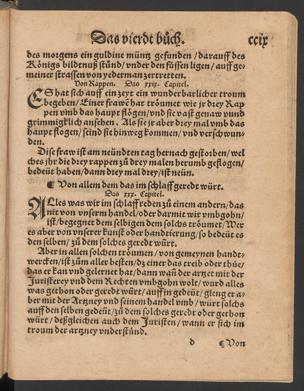 Das vierdt bůch. ccix
des morgens ein guldine müntz gefunden / darauff des
Königs bildtnuß stůnd / vnder den füssen ligen / auff ge-
meiner strassen von yederman zertretten.
Von Rappen. Das xxix. Capitel.
ES hat sich auff ein zeyt ein wunderbarlicher troum
begeben / Einer frawē hat troůmet wie jr drey Rap
pen vmb das haupt flögen / vnd sie vast genaw vnnd
grimmigklich ansehen. Als sie jr aber drey mal vmb das
haupt flogen / seind sie hinweg kommen / vnd verschwun-
den.
Dise fraw ist am neündten tag hernach gestorben / wel
ches jhr die drey rappen zů drey malen herumb geflogen /
bedeüt haben / dann drey mal drey / ist neün.
¶ Von allem dem das im schlaff geredt würt.
Das xxx. Capitel.
ALles was wir im schlaff reden zů einem andern / das
mit von vnserm handel / oder darmit wir vmbgohn /
ist / begegnet dem selbigen dem solchs troůmet / Wer
es aber von vnser kunst oder handtierung / so bedeüt es
den selben / zů dem solches geredt würt.
Aber in allen solchen troůmen / von gemeynen handt-
wercken / ist zům aller besten / dz einer das treib oder thůe /
das er kan vnd gelernet hat / dann wañ der artzet mit der
Juristerey vnd dem Rechten vmbgohn wolt / wurd alles
was gethon oder geredt würt / auff jn gedeüt / gleng er a-
ber mit der Artzney vnd seinem handel vmb / würt solchs
auff den selben gedeüt / zů dem solches geredt oder gethon
würt / deßgleichen auch dem Juristen / wann er sich im
troum der artzney vnderstünd.
d ¶ Von